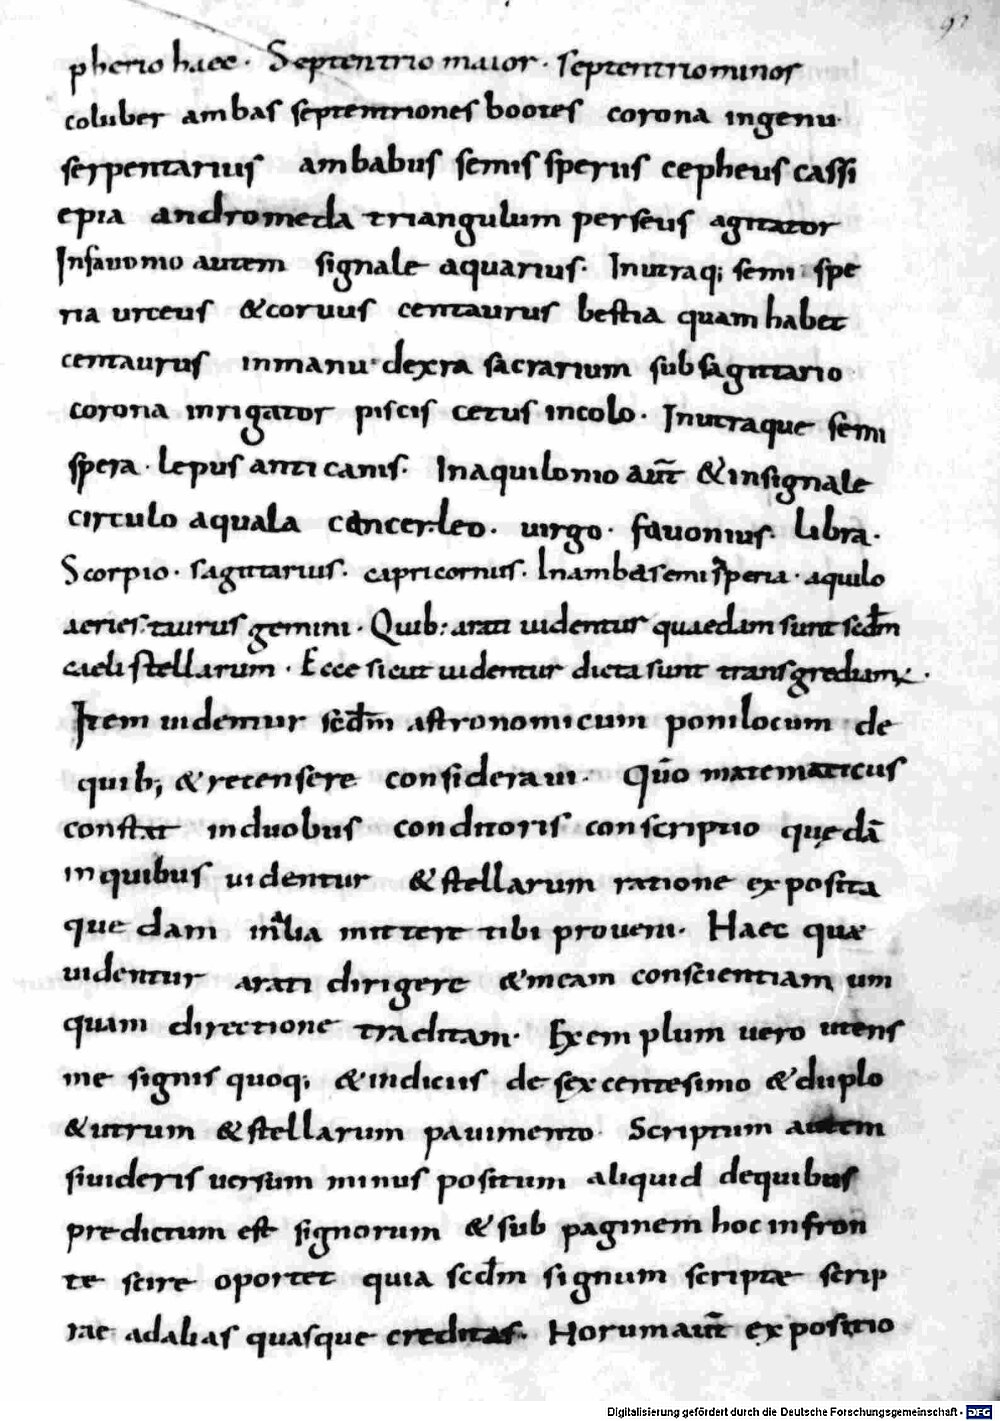 92
pherio haec · Septentrio maior · septentrio minor
coluber ambas septemtriones bootes corona ingenu·
serpentarius ambabus semis sperus cepheus cassi
epia andromeda triangulum perseus agitator
Infauonio autem signale aquarius · Inutraq; semi spe
ria urceus & coruus centaurus bestia quam habet
centaurus in manu dexra sacrarium sub sagittario
corona inrigator piscis cetus incolo · Inutraque semi
spera · lepus anti canis · Inaquilonio aut̄ & insignale
circulo aquala cancer · leo · uirgo · fauonius · Libra ·
Scorpio · sagittarius · capricornus · Inamba semisperia · aquilo
aeries · taurus gemini · Quib: arati uidentur quaedam sunt scd̄m
caeli stellarum · Ecce sicut uidentur dicta sunt transgrediamx ·
Item uidentur scd̄m astronomicum poni locum de
quib; & recensere consideraui · Qūo matematicus
constat induobus conditoris conscriptio quędā
inquibus uidentur & stellarum ratione exposita
quedam mittere tibi proueni · Haec quae
uidentur arati dirigere & meam conscientiam um
quam directione traditam · Exemplum uero utens
me signis quoq; & indicus de sexcentesimo & duplo
& utrum & stellarum pauimento · Scriptum autem
siuideris uersum minus positum aliquid dequibus
predictum est signorum & sub paginem hoc infron
te scire oportet quia scd̄m signum scriptae scrip
rae adalias quasque creditas · Horum aut̄ expositio
Digitalisierung gefördert durch die Deutsche Forschungsgemeinschaft - DFG